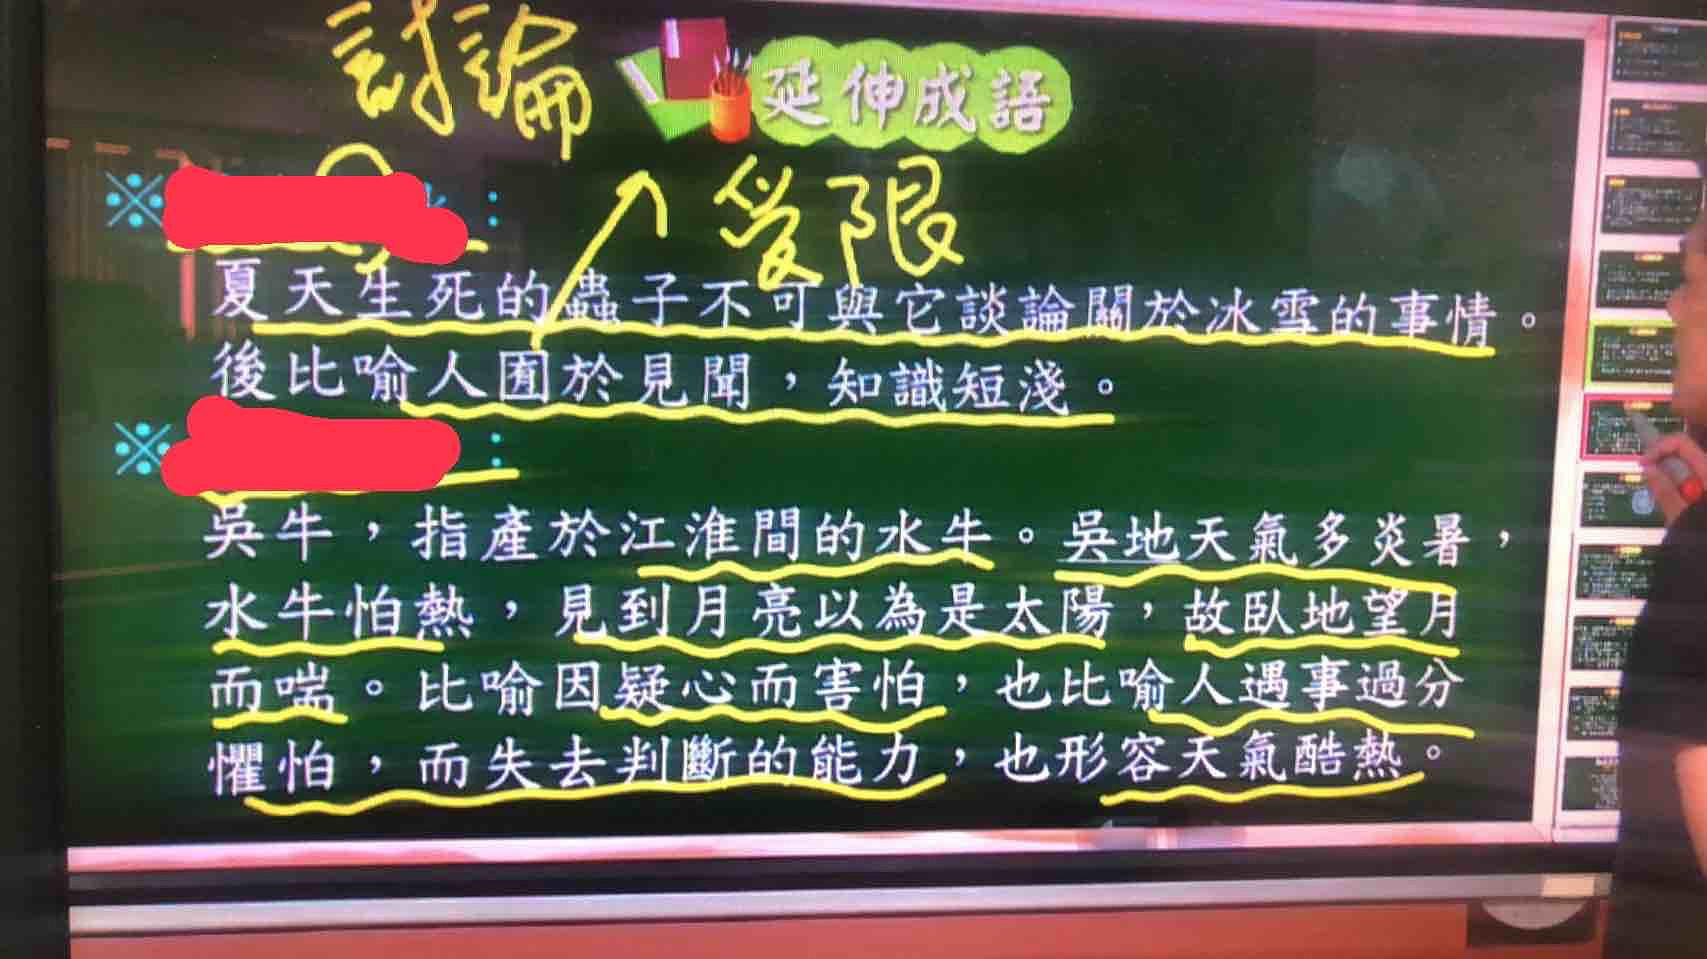 討論
延伸成語
受限
※ :
夏天生死的蟲子不可與它談論關於冰雪的事情。
後比喻人囿於見聞，知識短淺。
※ :
吳牛，指產於江淮間的水牛。吳地天氣多炎暑，
水牛怕熱，見到月亮以為是太陽，故臥地望月
而喘。比喻因疑心而害怕，也比喻人遇事過分
懼怕，而失去判斷的能力，也形容天氣酷熱。